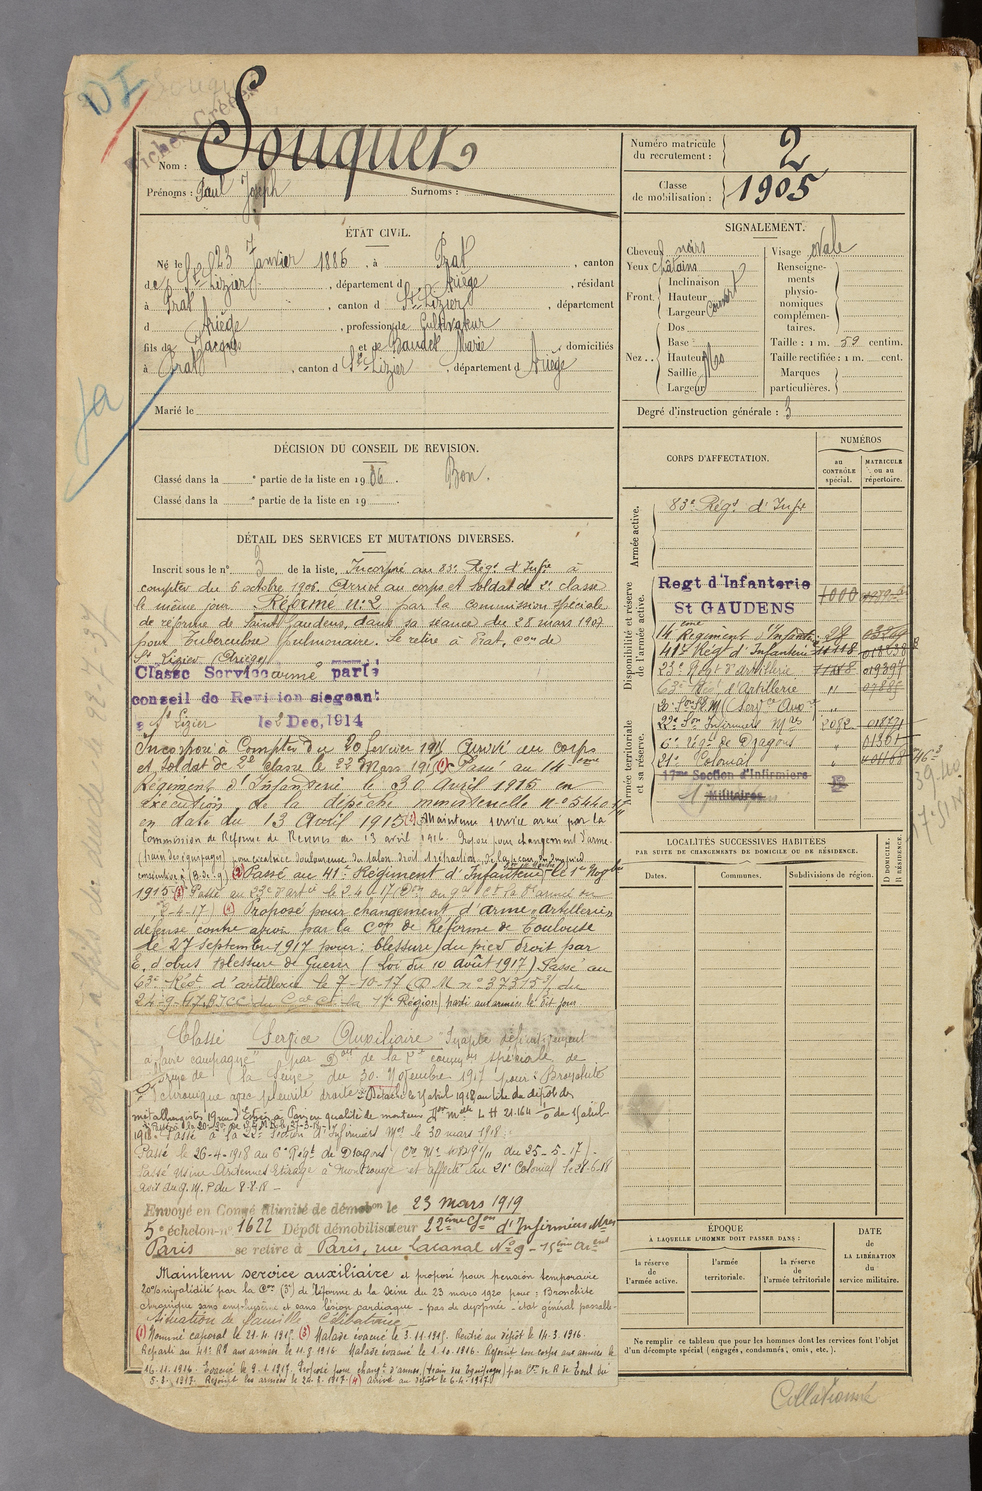 Fiches Créées
Nom : Souquet
Prénoms : Paul Joseph Surnoms :
Numéro matricule du recrutement : 2
Classe de mobilisation : 1905
ÉTAT CIVIL.
Né le 23 Janvier 1886, à Prat, canton
de St Lizier, département d Ariège, résidant
à Prat, canton d St Lizier, département
d Ariège, profession de Cultivateur
fils de Jacques et de Baudet Marie, domiciliés
à Prat, canton d St Lizier, département d Ariège
Marié le
SIGNALEMENT.
Cheveux noirs
Yeux châtains
Front. Inclinaison
Hauteur
Largeur
couvert
Nez. . Dos
Base
Hauteur
Saillie
Largeur
Visage ovale
Renseignements physionomiques complémentaires.
Taille : 1 m. 59 centim.
Taille rectifiée : 1 m. cent.
Marques particulières.
Degré d'instruction générale : 3
DÉCISION DU CONSEIL DE REVISION.
Classé dans la e partie de la liste en 1906. Bon.
Classé dans la e partie de la liste en 19
DÉTAIL DES SERVICES ET MUTATIONS DIVERSES.
Inscrit sous le n° 3 de la liste, Incorporé au 83e Régt d'Infie à
compter du 6 octobre 1906. Arrivé au corps et soldat de 2e classe
le même jour. Réformé n° 2 par la commission spéciale
de réforme de Saint Gaudens, dans sa séance du 28 mars 1907
pour Tuberculose pulmonaire. Se retire à Prat, con de
St Lizier (Ariège)
Classé Service armé par le
conseil de Revision siegeant
à St Lizier le 2 Dec, 1914
Incorporé à Compter du 20 février 1915 Arrivé au corps
et soldat de 2e classe le 22 Mars 1915 (1) Passé au 14ème
Régiment d'Infanterie le 30 Avril 1915 en
exécution de la dépêche ministérielle n°
en date du 13 Avril 1915 Maintenu service armé par la
Commission de Réforme de Rennes du 13 avril 1916. Proposé pour changement d'arme
(train des équipages) pour cicatrice douloureuse du talon droit
(2) Passé au 41e Régiment d'Infanterie le 1er Novbre
1915 (3) Passé au 23e d'artie le 2 4 17
2-4-17) (4) Proposé pour changement d'arme artillerie
défense contre avion par la Con de Réforme de Toulouse
le 27 septembre 1917 pour : blessure du pied droit par
E. d'obus Blessure de Guerre (Loi du 10 août 1917) Passé au
63e Régt d'artillerie le 7-10-17 (D M n° 37315 du
24-9-17 17e Région) parti aux armées le dit jour
Classé Service Auxiliaire "Inapte définitivement
à faire campagne" par Don de la comon spéciale de
Réforme de la Seine du 30 Novembre 1917 pour : Bronchite
chronique avec pleurite droite. Détaché le 1 avril 1918 au titre du dépôt des
métallurgistes
1918. Passé à la 22e Section d'Infirmiers Mres le 30 mars 1918.
Passé le 26-4-1918 au 6e Régt de Dragons du 25-5-17).
Passé Usine à Montrouge et affecté au 21e Colonial le 28-6-18
Envoyé en Congé illimité de démobon le 23 mars 1919
5e échelon - n° 1622 Dépôt démobilisateur 22ème Son d'Infirmiers Mres
Paris se retire à Paris, rue Lacanal No 9 - 15ème Arrent
Maintenu service auxiliaire et proposé pour pension temporaire
20% invalidité par la Con (3e) de Réforme de la Seine du 23 mars 1920 pour : Bronchite
chronique sans emphysème et sans lésion cardiaque - pas de dyspnée - état général passable
Situation de famille : Célibataire
(1) Nommé caporal le 21.4.1915 (3) Malade évacué le 3.11.1915. Rentré au dépôt le 14.3.1916.
Reparti au 41e RI aux armées le 11.8.1916 Malade évacué le 1.10.1916. Rejoint son corps aux armées le
16.11.1916. Evacué le 9.1.1917. Proposé pour changt d'armes (train des Equipages) par Con de R de Toul du
5.3.1917. Rejoint les armées le 24.3.1917. (4) Arrivé au dépôt le 6.4.1917
CORPS D'AFFECTATION.
NUMÉROS
au CONTRÔLE spécial.
MATRICULE ou au répertoire.
Armée active.
83e Régt d'Infie
Disponibilité et réserve de l'armée active.
Regt d'Infanterie
St GAUDENS 1000
14ème Régiment d'Infanterie 28
41e Régt d'Infanterie
23e Regt d'artillerie 019397
63e Régt d'Artillerie " 07885
20e Son S.E.M (Serv ce Auxre) "
Armée territoriale et sa réserve.
22e Son Infirmiers Mres 2082
6e Régt de Dragons "
21e Colonial "
17me Section d'Infirmiers
Militaires
LOCALITÉS SUCCESSIVES HABITÉES
PAR SUITE DE CHANGEMENTS DE DOMICILE OU DE RÉSIDENCE.
Dates. Communes. Subdivisions de région. D DOMICILE. R RÉSIDENCE.
ÉPOQUE
À LAQUELLE L'HOMME DOIT PASSER DANS :
la réserve de l'armée active.
l'armée territoriale.
la réserve de l'armée territoriale
DATE de LA LIBÉRATION du service militaire.
Ne remplir ce tableau que pour les hommes dont les services font l'objet
d'un décompte spécial (engagés, condamnés, omis, etc.).
Collationné